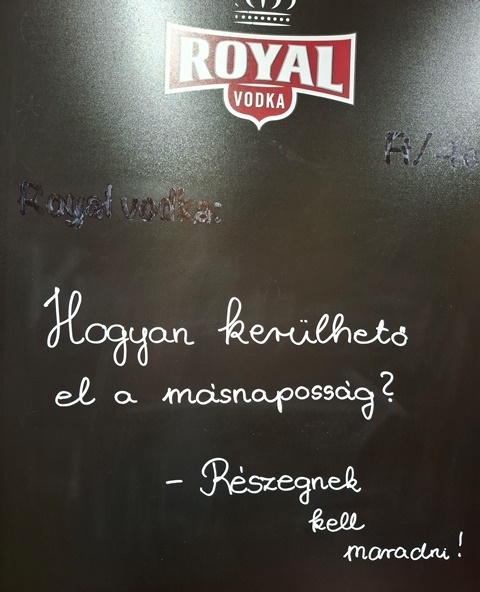 ROYAL
VODKA
Royal vodka:
Hogyan kerülhető
el a másnaposság?
- Részegnek
kell
maradni!